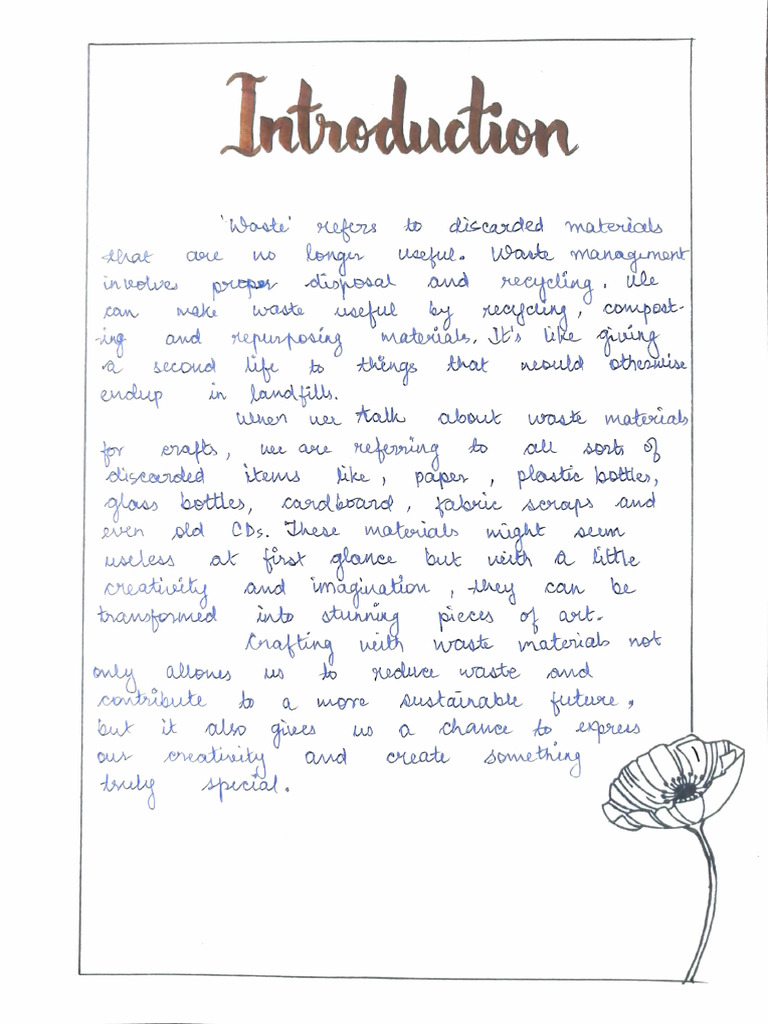 Introduction
'Waste' refers to discarded materials
that are no longer useful. Waste management
involves proper disposal and recycling. We
can make waste useful by recycling, compost-
-ing and repurposing materials. It's like giving
a second life to things that would otherwise
endup in landfills.
When we talk about waste materials
for crafts, we are referring to all sorts of
discarded items like, paper, plastic bottles,
glass bottles, cardboard, fabric scraps and
even old CDs. These materials might seem
useless at first glance but with a little
creativity and imagination, they can be
transformed into stunning pieces of art.
Crafting with waste materials not
only allows us to reduce waste and
contribute to a more sustainable future,
but it also gives us a chance to express
our creativity and create something
truly special.
1